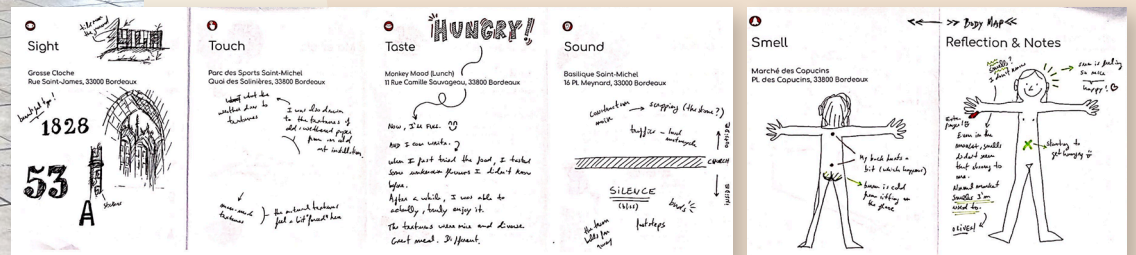 Sight
Grosse Cloche
Rue Saint-James, 33000 Bordeaux
beautiful type!
1828
53
A
Touch
Parc des Sports Saint-Michel
Quai des Salinières, 33800 Bordeaux
what the
weather does to
textures
I was lie down
to the textures of
old
from an old
art instillation.
man-made
textures
the natural textures
feel a bit forced here
HUNGRY!
Taste
Monkey Mood (Lunch)
11 Rue Camille Sauvageau, 33800 Bordeaux
Now, I'm FULL.
And I can write.
When I first tried the food, I tasted
some unknown flavours I didn't know
before.
After a while, I was able to
actually, truly enjoy it.
The textures were nice and diverse
Great meal. Different.
Sound
Basilique Saint-Michel
16 Pl. Meynard, 33000 Bordeaux
construction
noise
scrapping (the stone?)
traffic - loud
motorcycle
CHURCH
SILENCE
birds
footsteps
Smell
Marché des Capucins
Pl. des Capucins, 33800 Bordeaux
My back hurts a
bit (which happens)
bum is cold
from sitting on
the floor
BODY MAP
Reflection & Notes
smells?
I don't know
sun is feeling
so nice
happy!
Extra
page!
Even in the
market, smells
didn't seem
that strong to
me.
Normal market
smells I'm
used to.
OLIVES!
starting to
get hungry